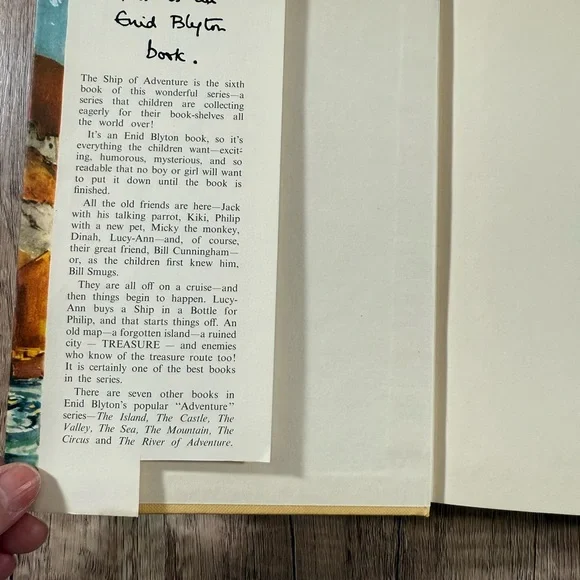 Enid Blyton
book.
The Ship of Adventure is the sixth
book of this wonderful series—a
series that children are collecting
eagerly for their book-shelves all
the world over!
It's an Enid Blyton book, so it's
everything the children want—excit-
ing, humorous, mysterious, and so
readable that no boy or girl will want
to put it down until the book is
finished.
All the old friends are here—Jack
with his talking parrot, Kiki, Philip
with a new pet, Micky the monkey,
Dinah, Lucy-Ann—and, of course,
their great friend, Bill Cunningham—
or, as the children first knew him,
Bill Smugs.
They are all off on a cruise—and
then things begin to happen. Lucy-
Ann buys a Ship in a Bottle for
Philip, and that starts things off. An
old map—a forgotten island—a ruined
city — TREASURE — and enemies
who know of the treasure route too!
It is certainly one of the best books
in the series.
There are seven other books in
Enid Blyton's popular "Adventure"
series—The Island, The Castle, The
Valley, The Sea, The Mountain, The
Circus and The River of Adventure.